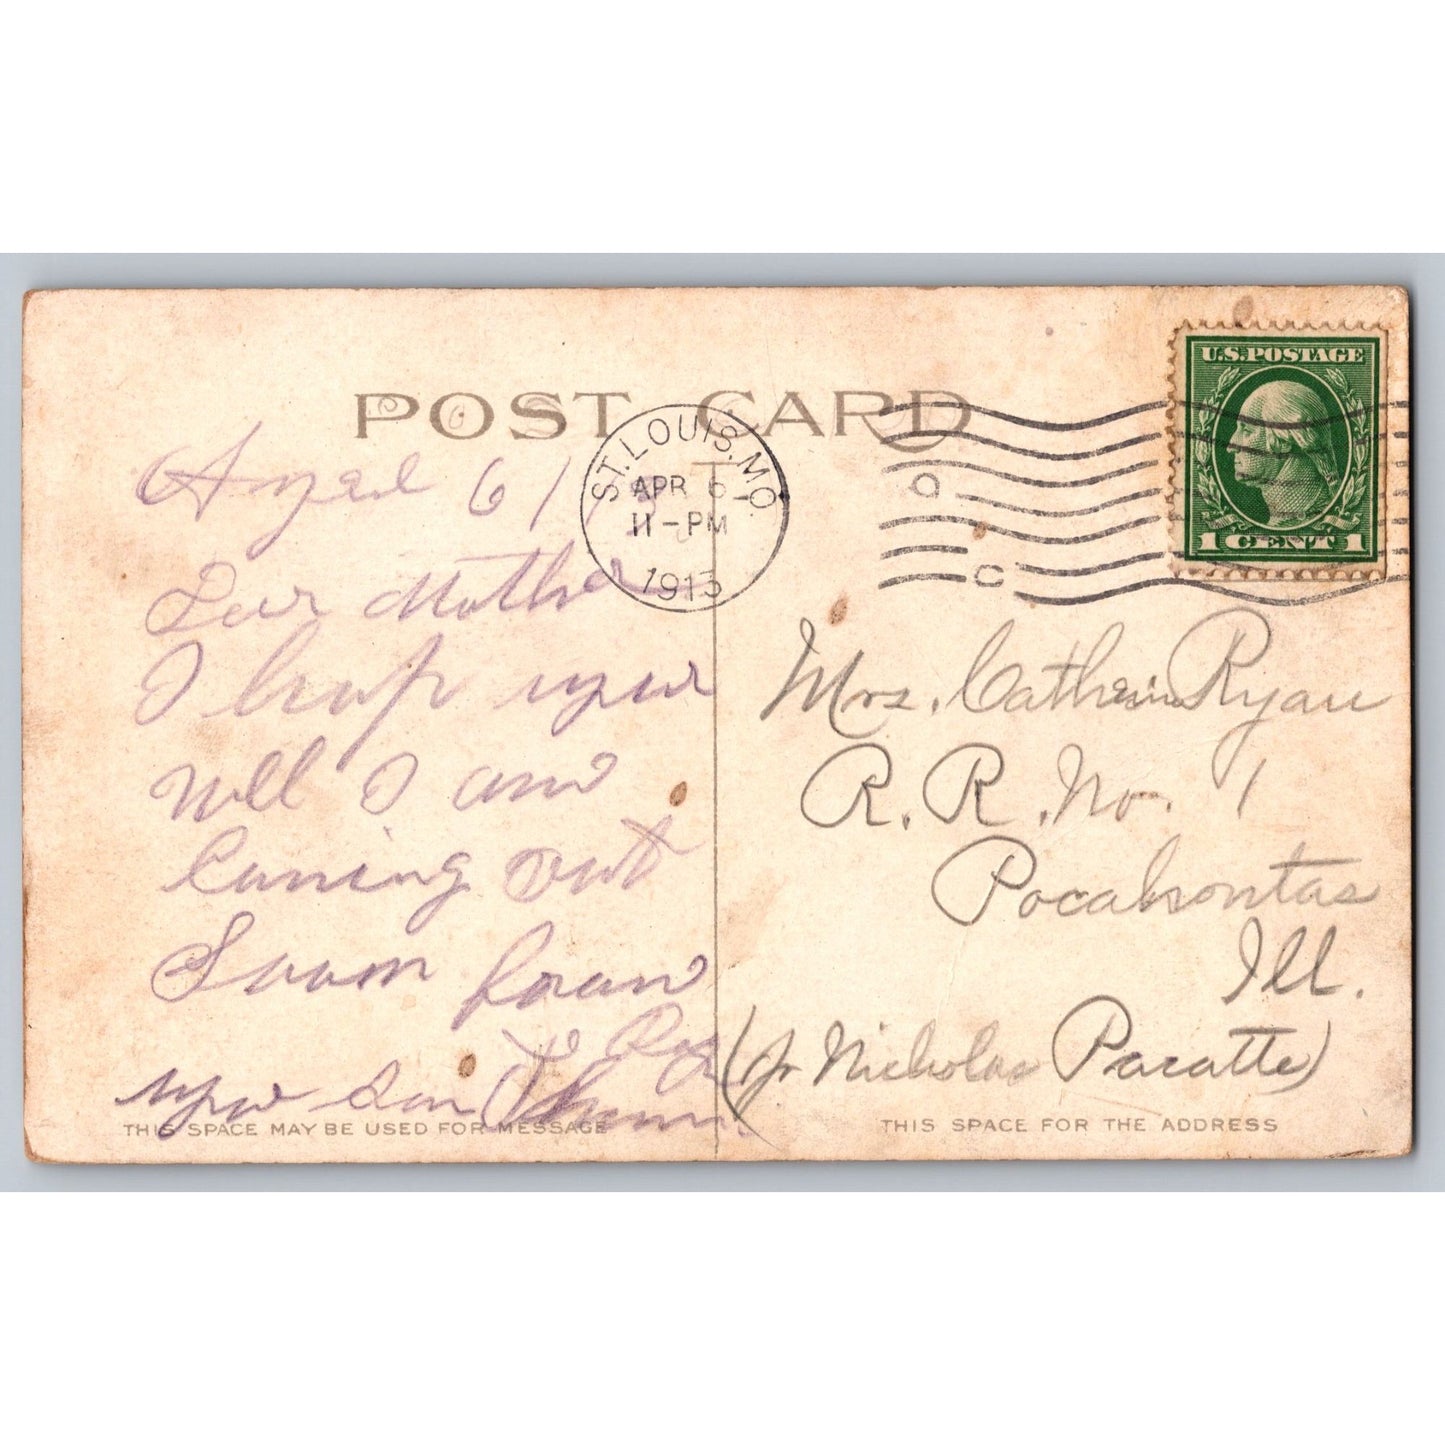 POST CARD
ST. LOUIS. MO.
APR 6
11-PM
1913
U.S. POSTAGE
1 CENT 1
Apral 6 1
Dear Mother
I hop your
well I am
Cuming out
Soom from
your Son
Mrs. Catherine Ryan
R. R. No. 1
Pocahontas
Ill.
(℅ Nicholas Pacatte)
THIS SPACE MAY BE USED FOR MESSAGE
THIS SPACE FOR THE ADDRESS